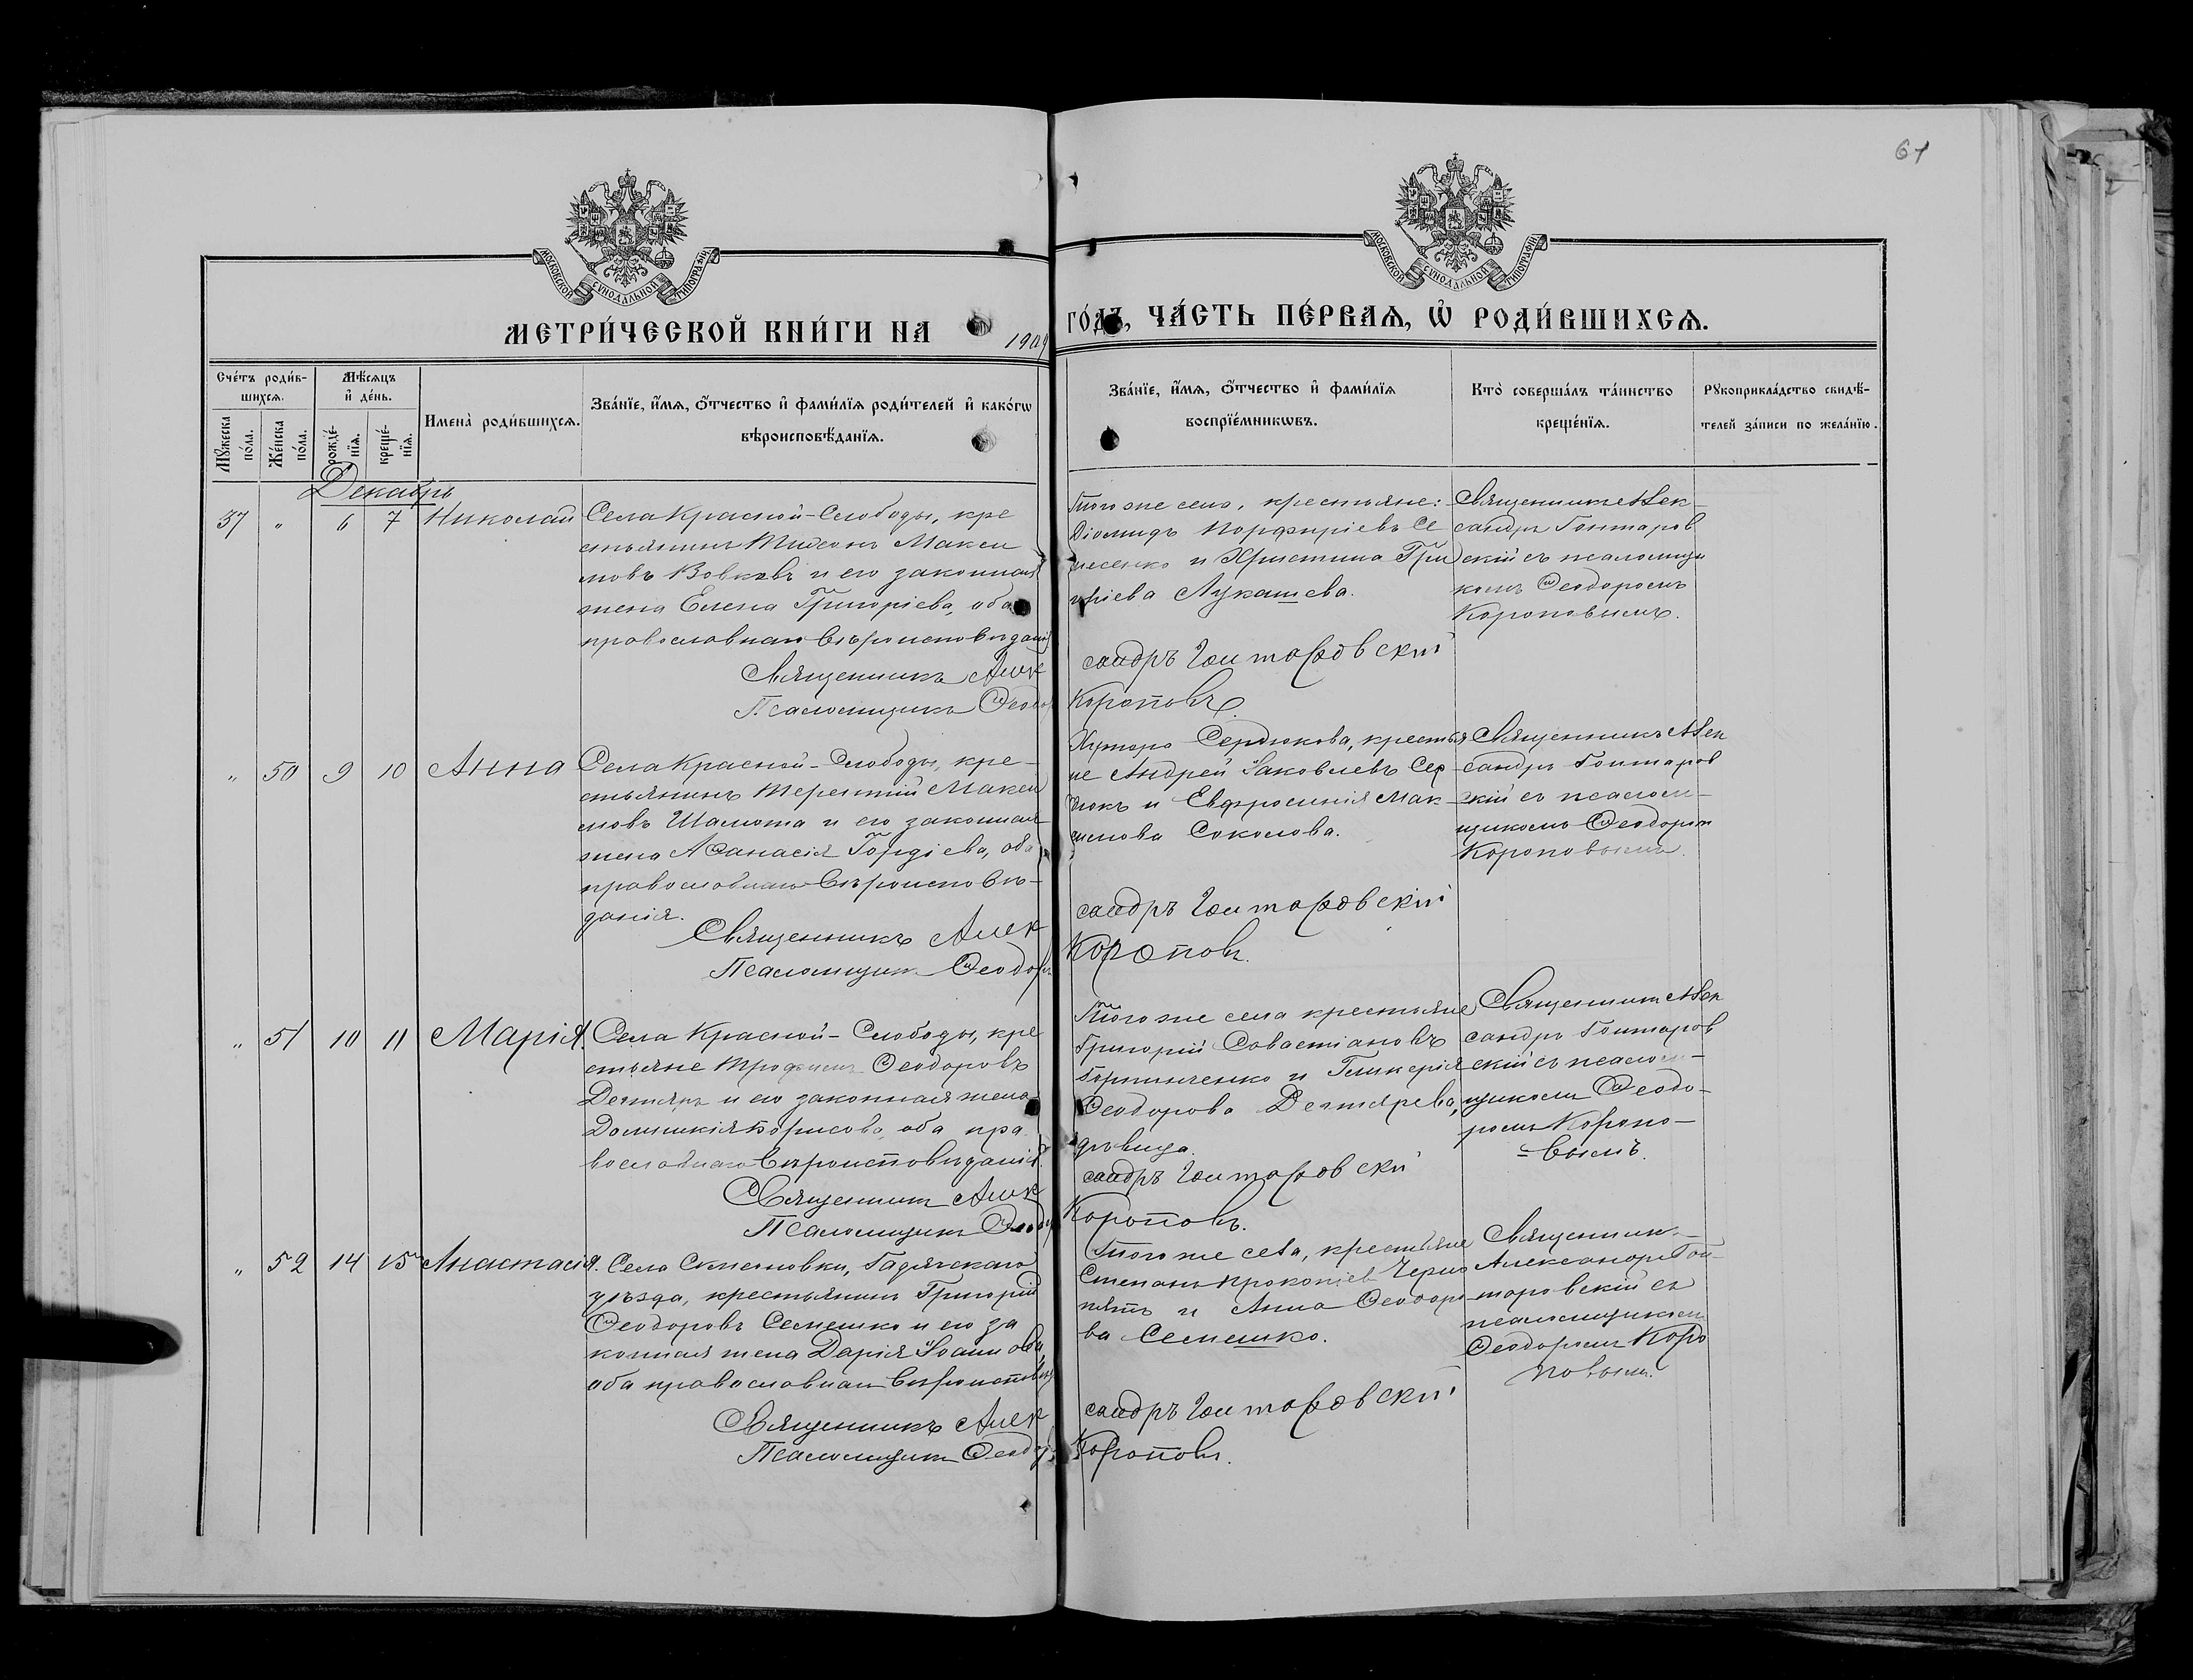 61
МОСКОВСКОЙ СѴНОДАЛЬНОЙ ТИПОГРАФІИ
МОСКОВСКОЙ СѴНОДАЛЬНОЙ ТИПОГРАФІИ
МЕТРИ́ЧЕСКОЙ КНИ́ГИ НА 1909
ГО́ДЪ, ЧА́СТЬ ПЕ́РВАѦ, Ѡ҆ РОДИ́ВШИХСѦ.
Сче́тъ роди́в-
шихсѧ.
Мѣ́сѧцъ
и҆ де́нь.
Мꙋ́жеска по́ла.
Же́нска по́ла.
рожде́-
нїѧ.
креще́-
нїѧ.
Имена̀ роди́вшихсѧ.
Зва́нїе, и҆́мѧ, ѻ҆́тчество и҆ фами́лїѧ роди́телей и҆ како́гѡ
вѣроисповѣ́данїѧ.
Зва́нїе, и҆́мѧ, ѻ҆́тчество и҆ фами́лїѧ
воспрїе́мникѡвъ.
Кто̀ соверша́лъ та́инство
креще́нїѧ.
Рꙋкоприкла́дство свидѣ́-
телей за́писи по жела́нїю.
Декабрь
37 " 6 7 Николай
Села Красной-Слободы, кре
стьянинъ Тимонъ Макси
мовъ Вовкъ и его законная
жена Елена Григоріева, оба
православнаго вѣроисповѣданія
Священникъ Алек
Псаломщикъ Ѳеодор
Того же села, крестьяне:
Діомидъ Порфиріевъ Се
месенко и Христина Гри
горіева Лукашева.
сандръ Гонтаровскій
Короповъ.
Священникъ Алек
сандръ Гонтаров
скій съ псаломщи
комъ Ѳеодоромъ
Короповымъ.
" 50 9 10 Анна
Села Красной-Слободы, кре-
стьянинъ Терентій Макси
мовъ Шамота и его законная
жена Аѳанасія Гордіева, оба
православнаго вѣроисповѣ-
данія.
Священникъ Алек
Псаломщикъ Ѳеодоръ
Хутора Сердюкова, крестья
не Андрей Іаковлевъ Сер
дюкъ и Евфросинія Мак-
симова Соколова.
сандръ Гонтаровскій
Короповъ.
Священникъ Алек
сандръ Гонтаров
скій съ псалом-
щикомъ Ѳеодором
Короповымъ.
" 51 10 11 Марія.
Села Красной-Слободы, кре
стьяне Трофимъ Ѳеодоровъ
Дегтярь и его законная жена
Домникія Борисова, оба пра
вославнаго вѣроисповѣданія.
Священникъ Алек
Псаломщикъ Ѳеодоръ
Того же села крестьяне
Григорій Савастіановъ
и Гликерія
Ѳеодорова Дегтярева,
дѣвица.
сандръ Гонтаровскій
Короповъ.
Священникъ Алек
сандръ Гонтаров
скій съ псалом-
щикомъ Ѳеодо-
ромъ Коропо-
вымъ.
" 52 14 15 Анастасія.
Села Гадячскаго
уѣзда, крестьянинъ Григорій
Ѳеодоровъ Семешко и его за
конная жена Дарія Іоаннова,
оба православнаго вѣроисповѣд
Священникъ Алек
Псаломщикъ Ѳеодоръ
Того же села, крестьяне
Степанъ Прокопіевъ
и Анна Ѳеодоро
ва Семешко.
сандръ Гонтаровскій
Короповъ.
Священникъ
Александръ Гон-
таровскій съ
псаломщикомъ
Ѳеодоромъ Коро
повымъ.